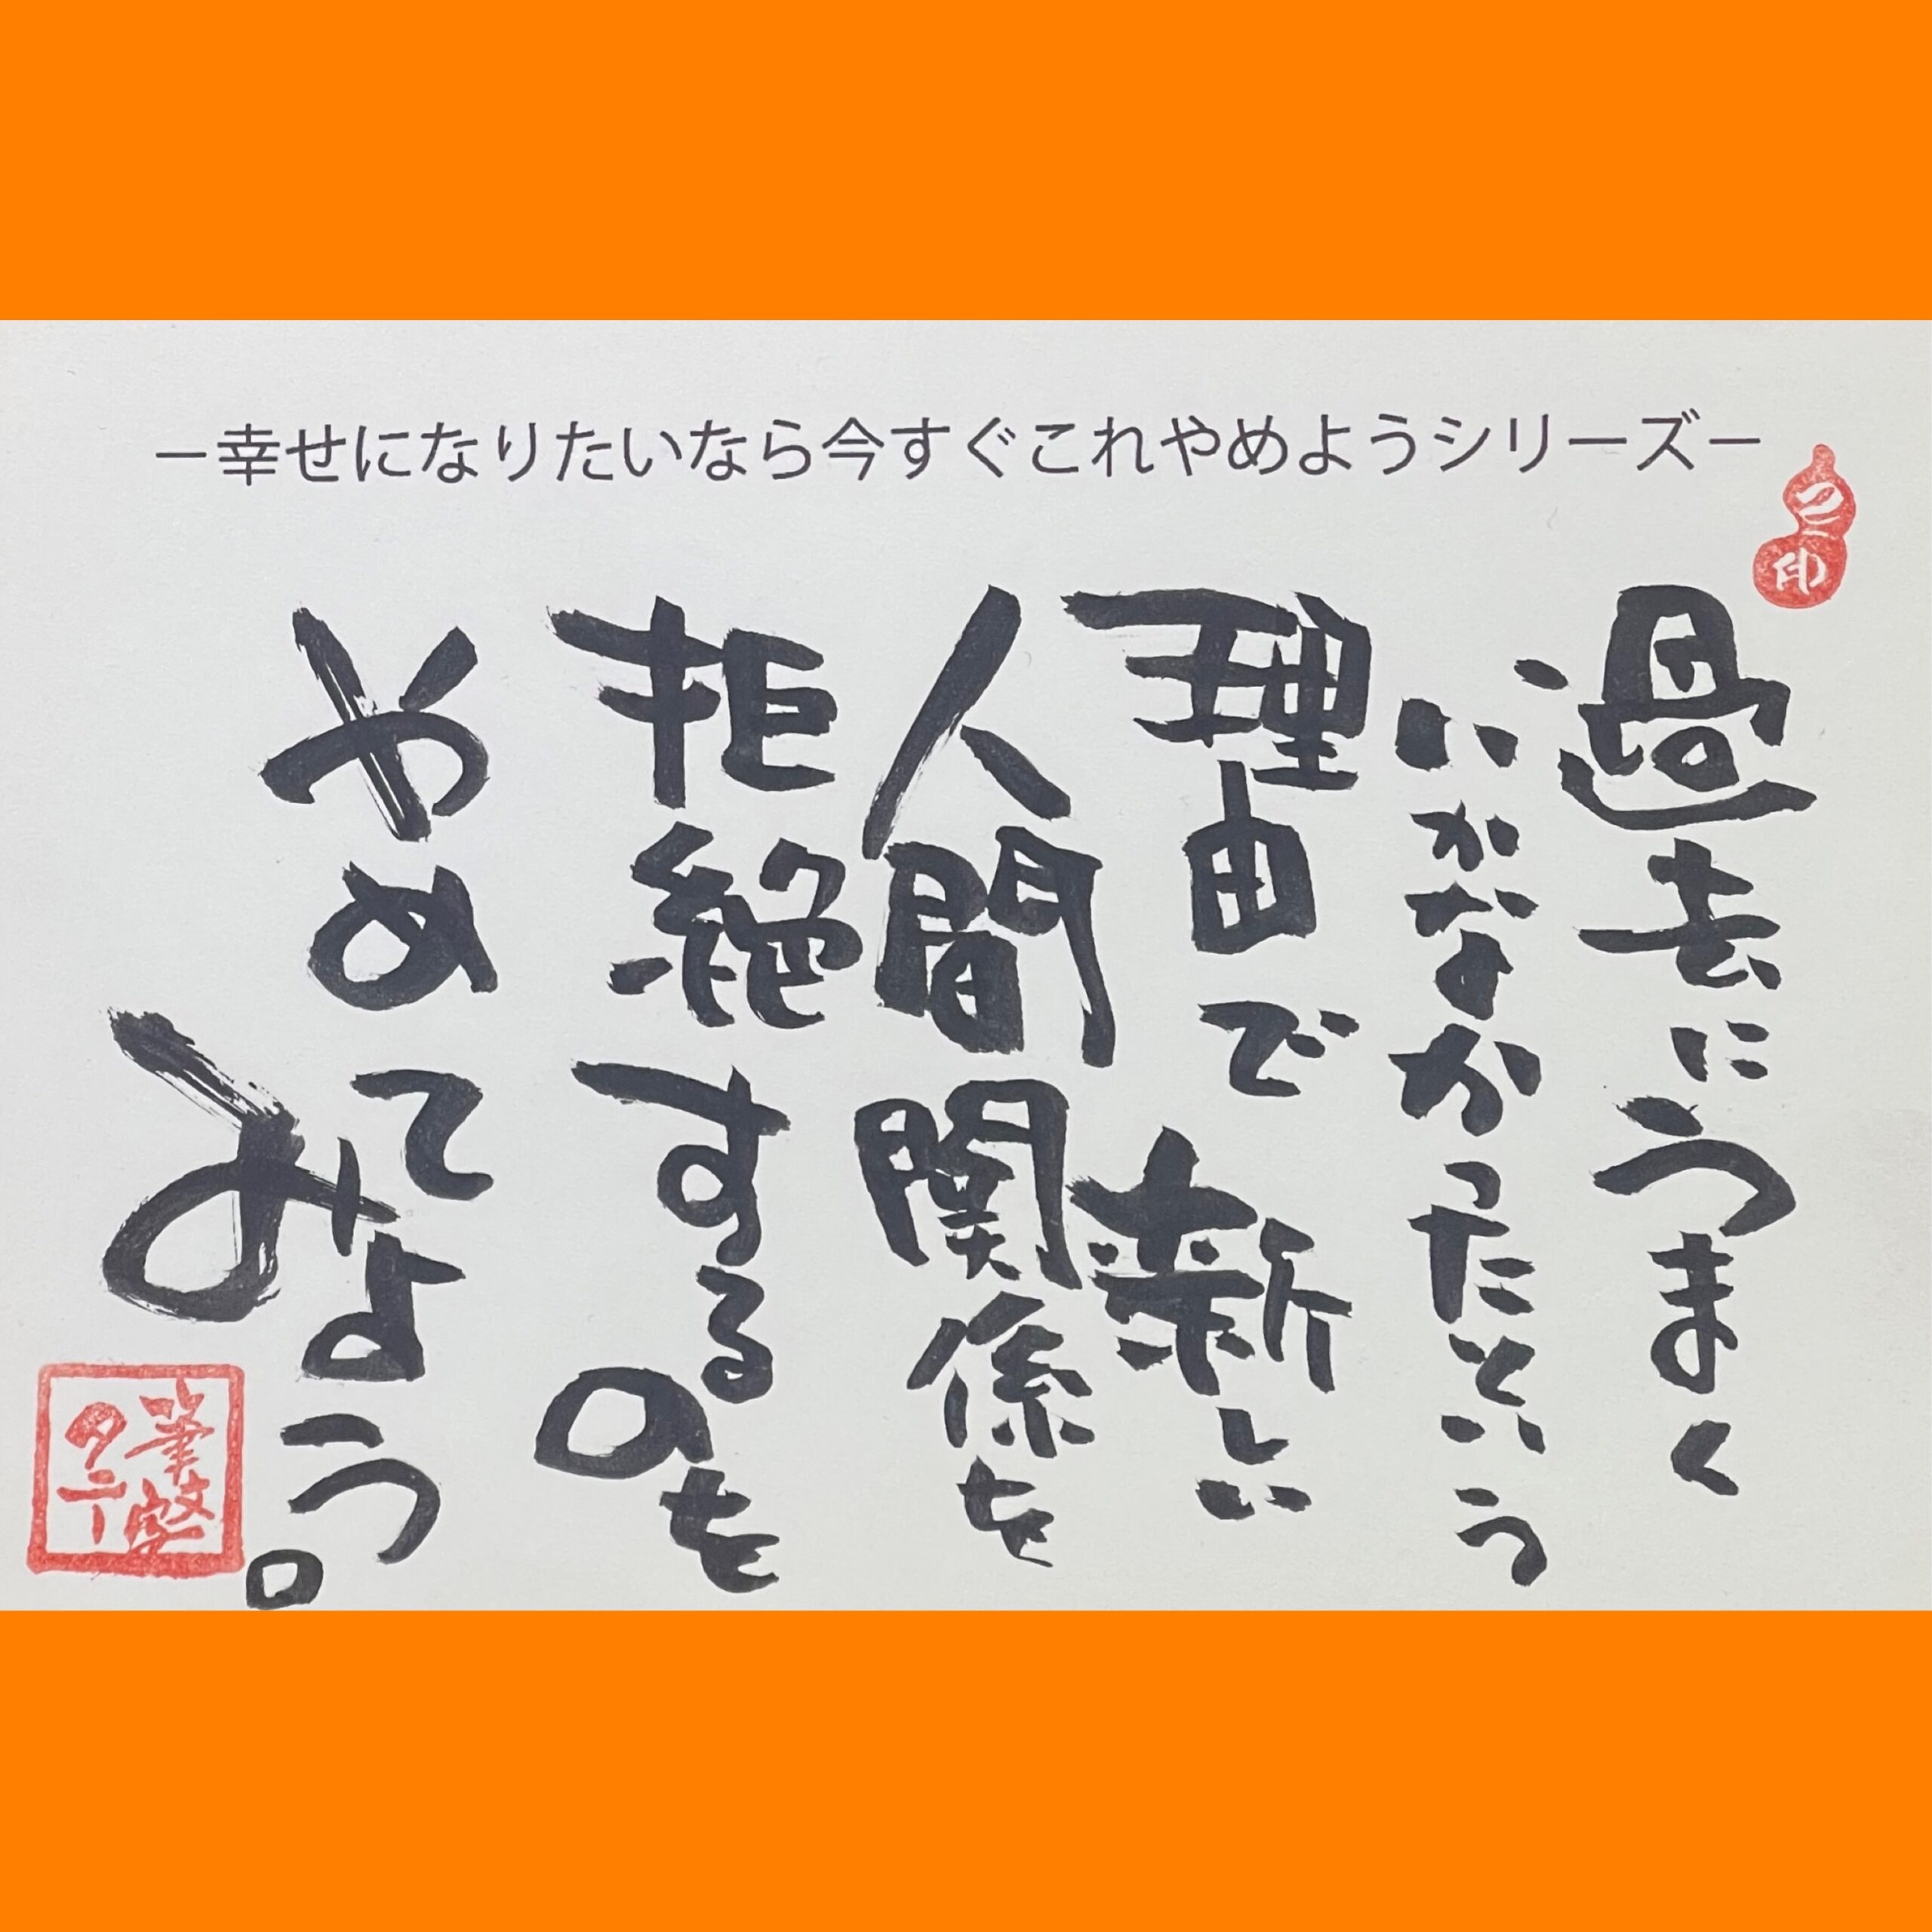 －幸せになりたいなら今すぐこれやめようシリーズ－
過去にうまく
いかなかったという
理由で新しい
人間関係を
拒絶するのも
やめて
みよう。
筆文字
タニー